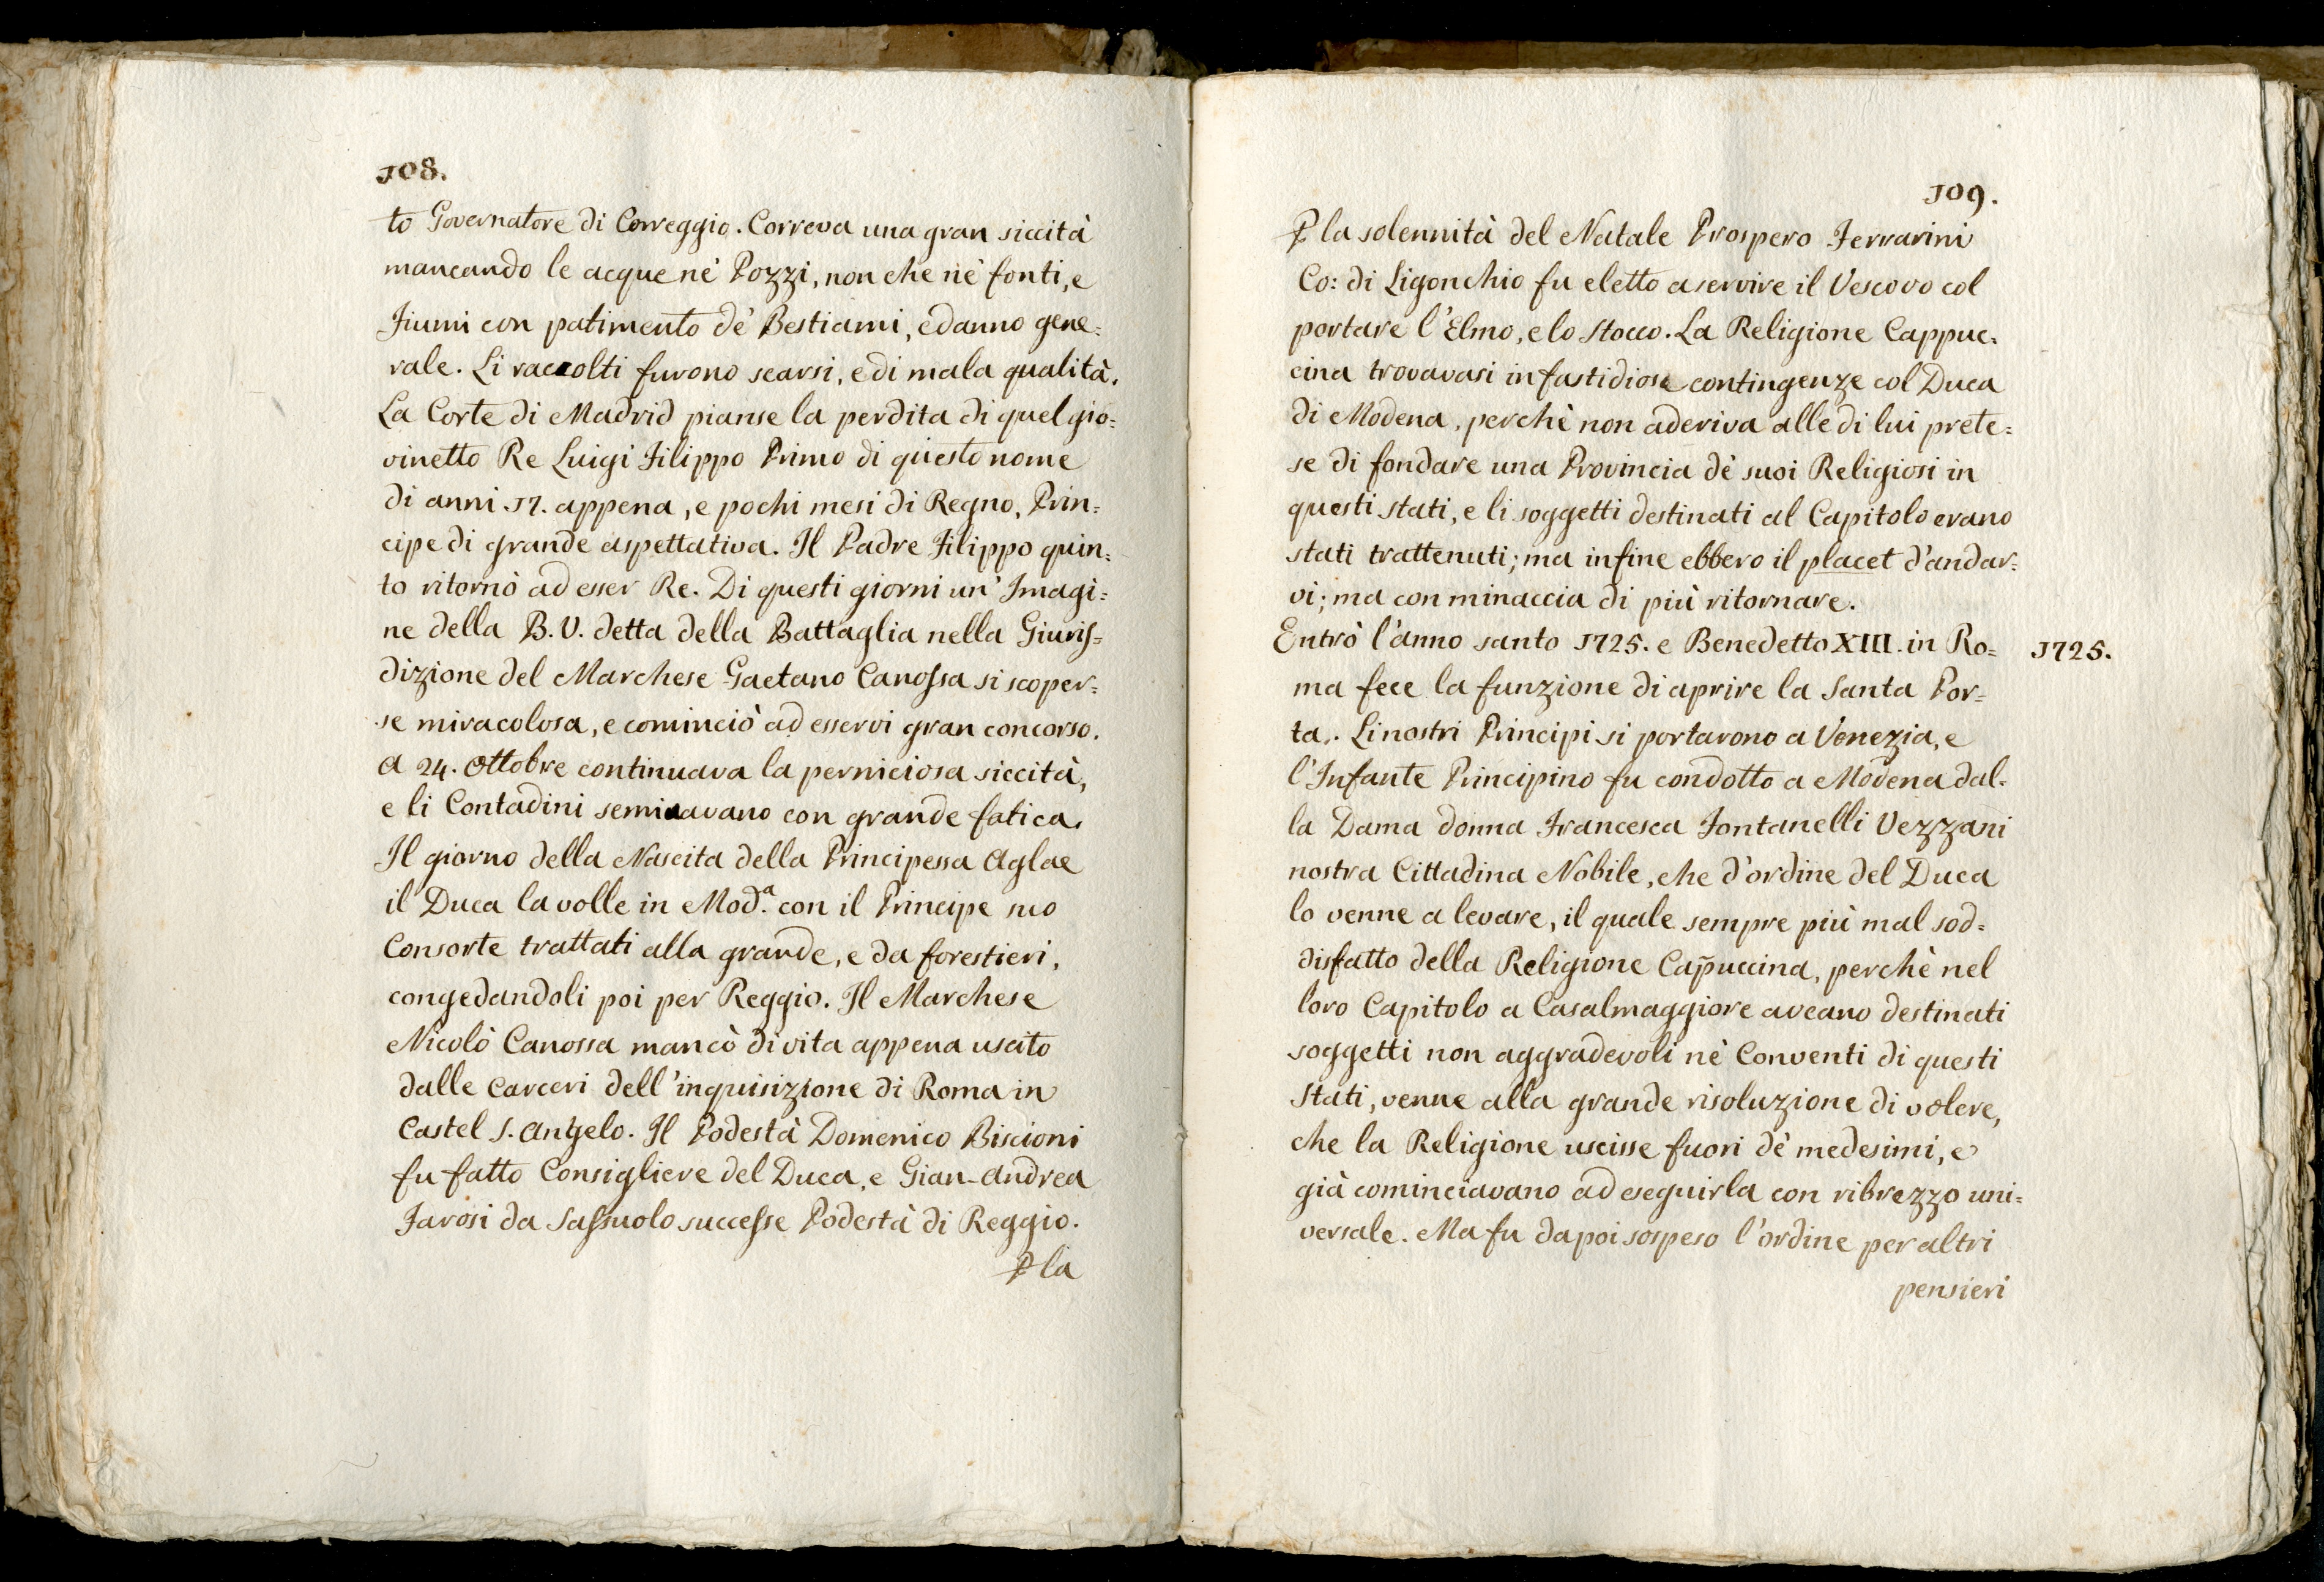 108.
to Governatore di Correggio. Correva una gran siccità
mancando le acque nè Pozzi, non che nè fonti, e
Fiumi con patimento dè Bestiami, e danno gene=
rale. Li raccolti furono scarsi, e di mala qualità.
La Corte di Madrid pianse la perdita di quel gio=
vinetto Re Luigi Filippo Primo di questo nome
di anni 17. appena, e pochi mesi di Regno, Prin=
cipe di grande aspettativa. Il Padre Filippo quin=
to ritornò ad esser Re. Di questi giorni un' Imagi=
ne della B. V. detta della Battaglia nella Giuris=
dizione del Marchese Gaetano Canoſsa si scoper=
se miracolosa, e cominciò ad esservi gran concorso.
A 24. Ottobre continuava la perniciosa siccità,
e li Contadini seminavano con grande fatica.
Il giorno della Nascita della Principessa Aglae
il Duca la volle in Mod.ª con il Principe suo
Consorte trattati alla grande, e da forestieri,
congedandoli poi per Reggio. Il Marchese
Nicolò Canossa mancò di vita appena uscito
dalle Carceri dell'inquisizione di Roma in
Castel S. Angelo. Il Podestà Domenico Biscioni
fu fatto Consigliere del Duca, e Gian-Andrea
Farosi da Saſsuolo succeſse Podestà di Reggio.
ꝑ la
109.
ꝑ la solennità del Natale Prospero Ferrarini
Co: di Ligonchio fu eletto a servire il Vescovo col
portare l'Elmo, e lo Stocco. La Religione Cappuc=
cina trovavasi in fastidiose contingenze col Duca
di Modena, perchè non aderiva alle di lui prete=
se di fondare una Provincia dè suoi Religiosi in
questi stati, e li soggetti destinati al Capitolo erano
stati trattenuti; ma infine ebbero il placet d'andar=
vi; ma con minaccia di più ritornare.
Entrò l'anno santo 1725. e Benedetto XIII. in Ro=
1725.
ma fece la funzione di aprire la Santa Por=
ta. Li nostri Principi si portarono a Venezia, e
l'Infante Principino fu condotto a Modena dal=
la Dama donna Francesca Fontanelli Vezzani
nostra Cittadina Nobile, che d'ordine del Duca
lo venne a levare, il quale sempre più mal sod=
disfatto della Religione Cap̃uccina, perchè nel
loro Capitolo a Casalmaggiore aveano destinati
soggetti non aggradevoli nè Conventi di questi
Stati, venne alla grande risoluzione di volere,
che la Religione uscisse fuori dè medesimi, e
già cominciavano ad eseguirla con ribrezzo uni=
versale. Ma fu dapoi sospeso l'ordine per altri
pensieri